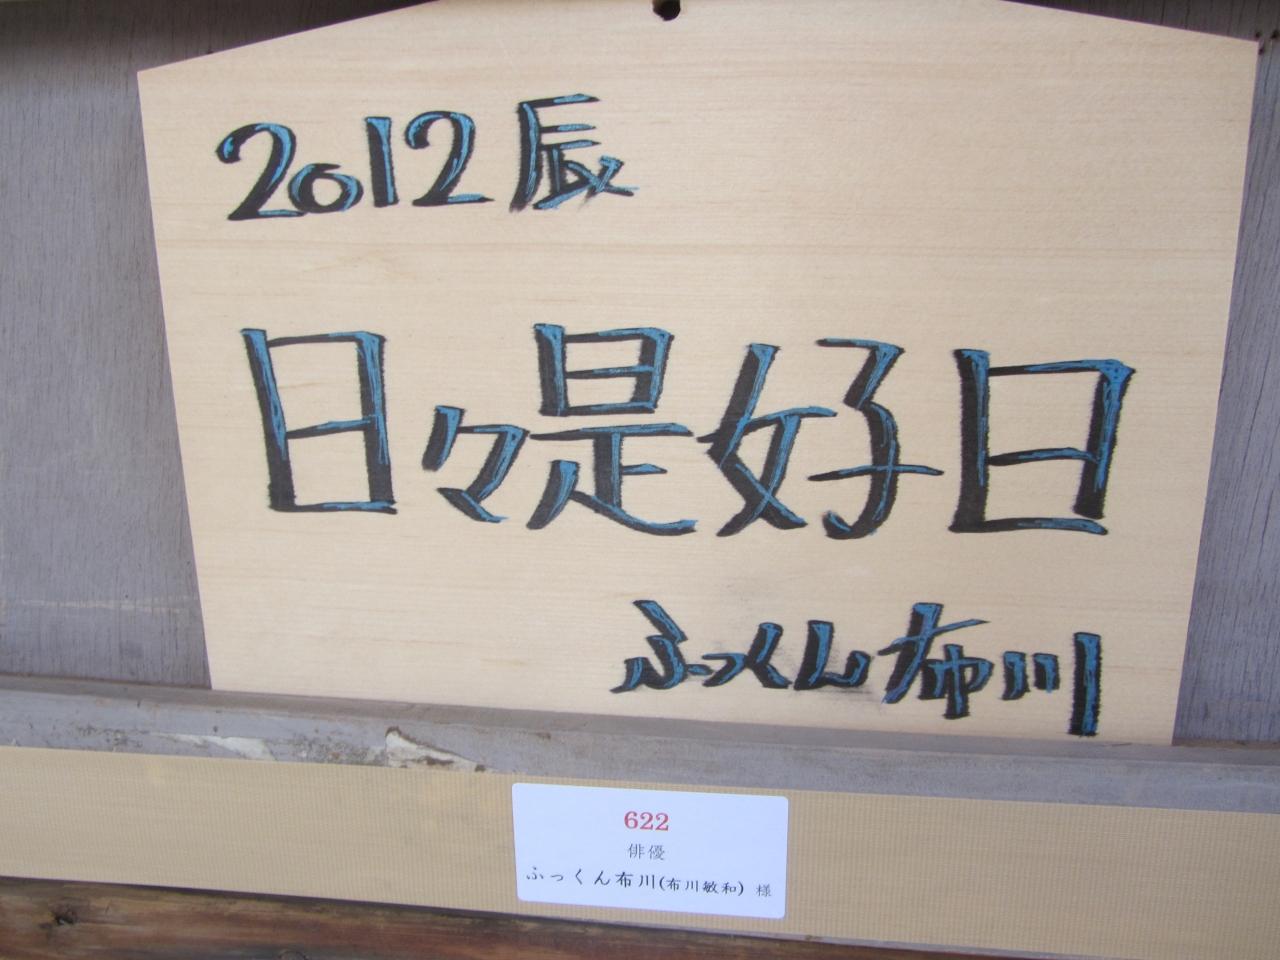 2012辰
日々是好日
ふっくん布川
622
俳優
ふっくん布川(布川敏和) 様